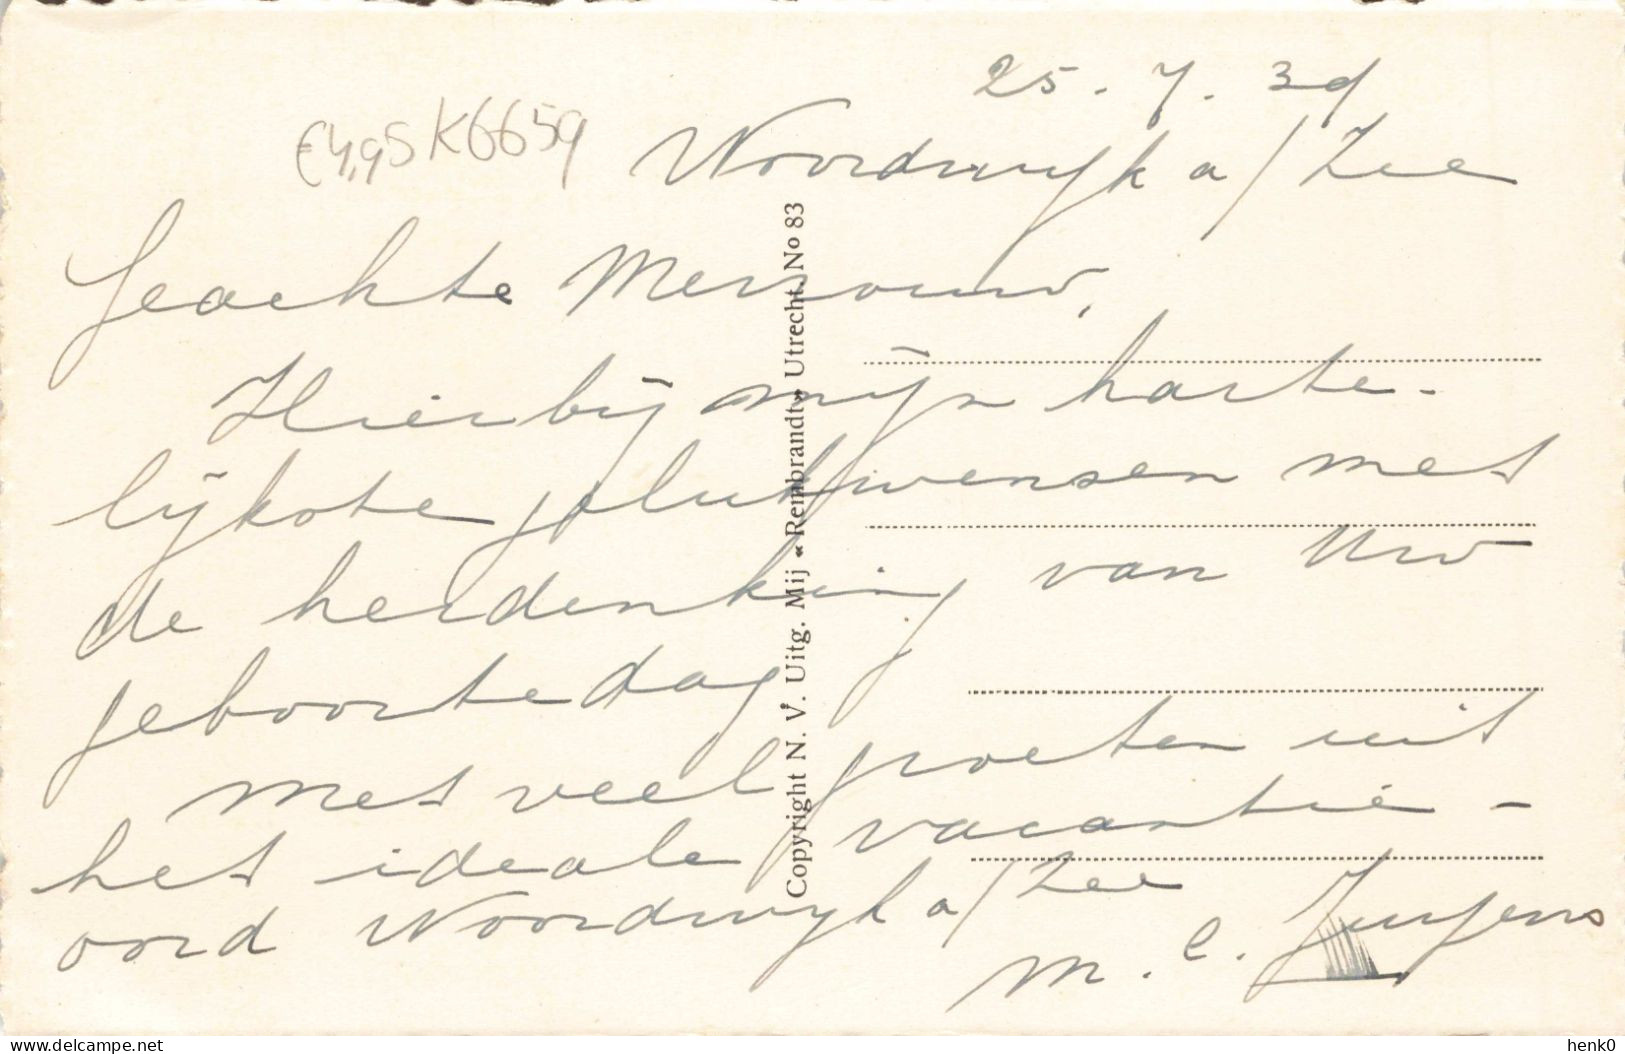 25.7.39
€4,95 K6659
Noordwijk a/Zee
Geachte Mevrouw,
Hierbij mijn harte-
lijkste gelukwensen met
de herdenking van Uw
geboortedag
Met veel groeten uit
het ideale vacantie-
oord Noordwijk a/Zee
M. C. Jurjens
Copyright N. V. Uitg. Mij «Rembrandt» Utrecht. No 83
www.delcampe.net
henk0